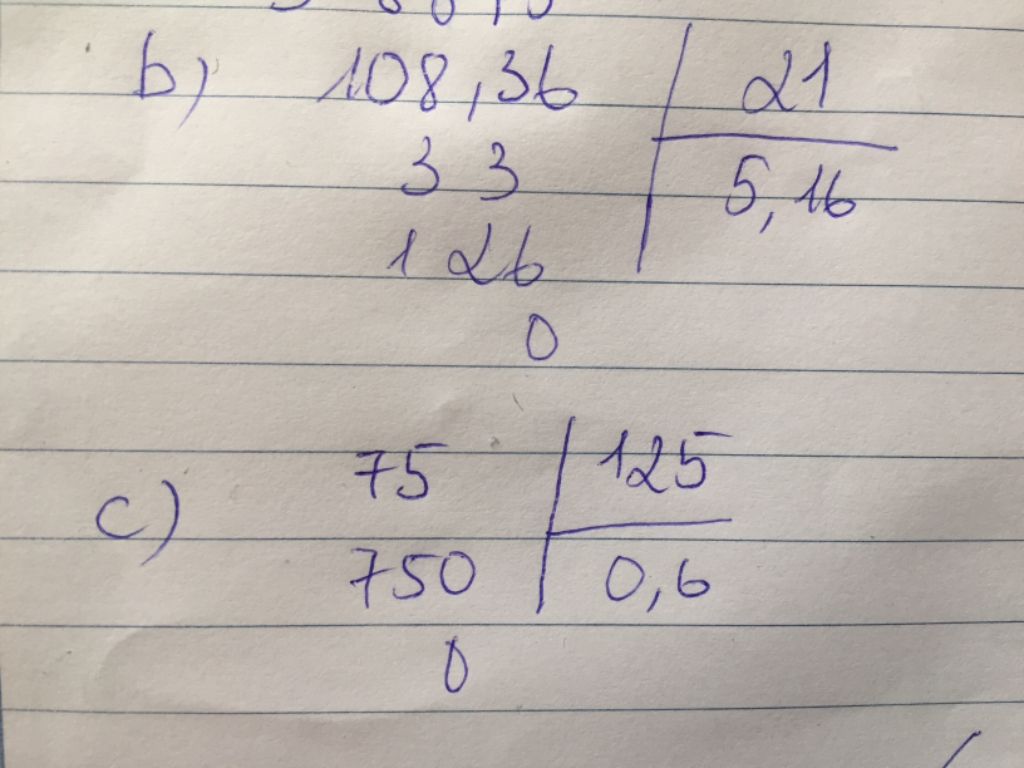 b) 108,36 | 21
3 3 | 5,16
1 26
0
c) 75 | 125
750 | 0,6
0